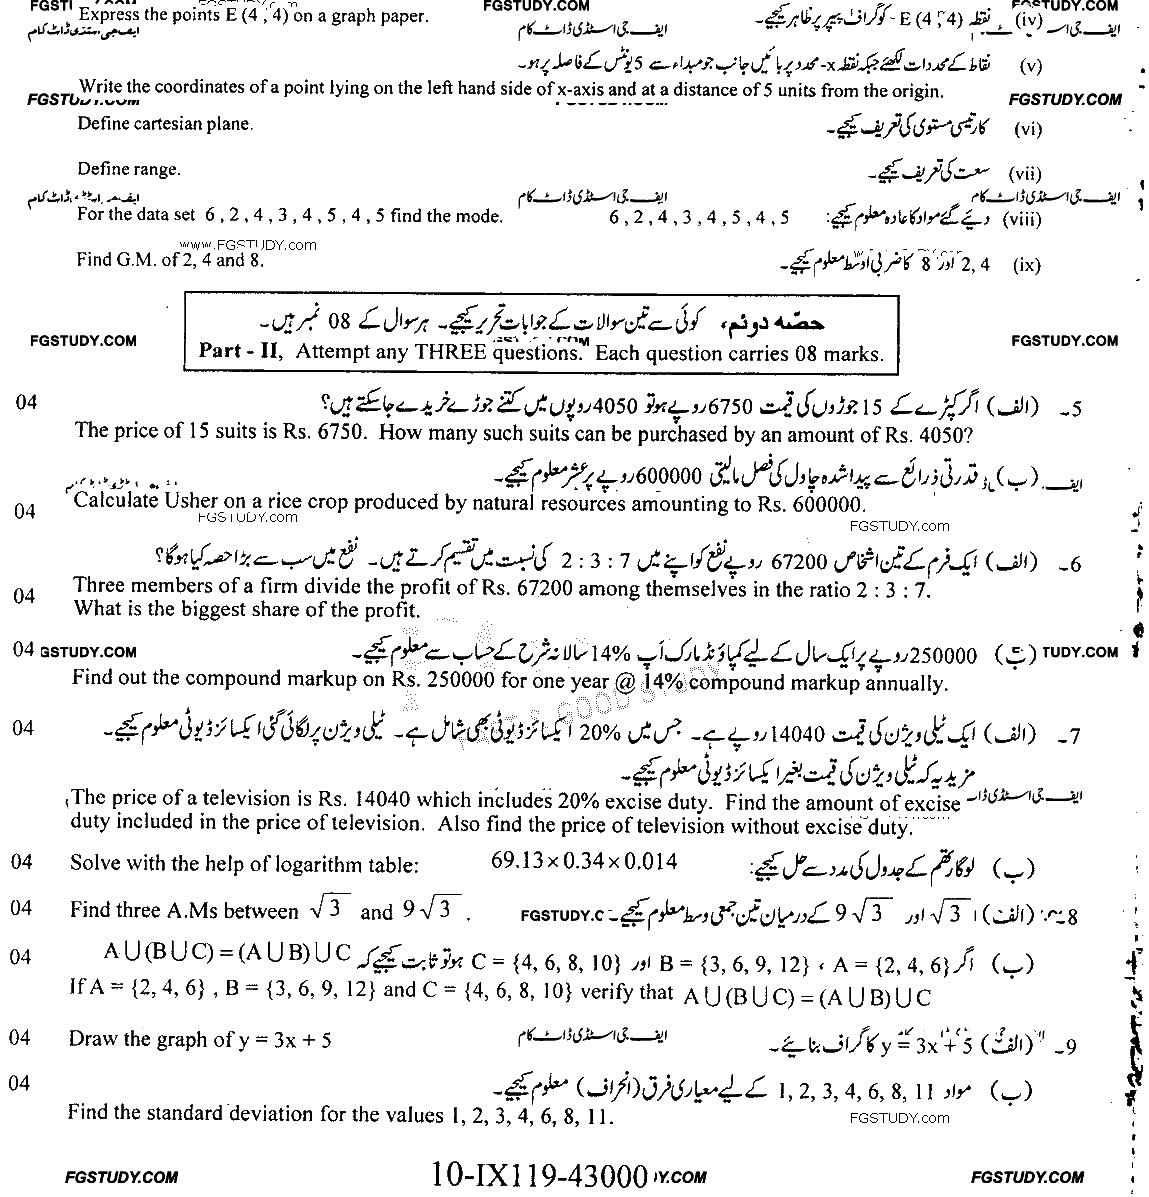 FGSTUDY.COM
Express the points E (4 , 4) on a graph paper.
نقطہ E (4 , 4) - کو گراف پیپر پر ظاہر کیجیے۔ (iv)
ایف جی اسٹڈی ڈاٹ کام
نقاط کے محددات لکھئے جبکہ نقطہ x- محدد پر بائیں جانب جو مبداء سے 5 یونٹس کے فاصلہ پر ہو۔ (v)
Write the coordinates of a point lying on the left hand side of x-axis and at a distance of 5 units from the origin.
FGSTUDY.COM FGSTUDY.COM
Define cartesian plane. کارتیسی مستوی کی تعریف کیجیے۔ (vi)
Define range. سعت کی تعریف کیجیے۔ (vii)
ایف جی اسٹڈی ڈاٹ کام ایف جی اسٹڈی ڈاٹ کام
For the data set 6 , 2 , 4 , 3 , 4 , 5 , 4 , 5 find the mode. 6 , 2 , 4 , 3 , 4 , 5 , 4 , 5 دیئے گئے مواد کا عادہ معلوم کیجیے: (viii)
www.FGSTUDY.com
Find G.M. of 2, 4 and 8. 2, 4 اور 8 کا ضربی اوسط معلوم کیجیے۔ (ix)
حصّہ دوئم، کوئی سے تین سوالات کے جوابات تحریر کیجیے۔ ہر سوال کے 08 نمبر ہیں۔
FGSTUDY.COM FGSTUDY.COM
Part - II, Attempt any THREE questions. Each question carries 08 marks.
04 5۔ (الف) اگر کپڑے کے 15 جوڑوں کی قیمت 6750 روپے ہو تو 4050 روپوں میں کتنے جوڑے خریدے جا سکتے ہیں؟
The price of 15 suits is Rs. 6750. How many such suits can be purchased by an amount of Rs. 4050?
(ب) قدرتی ذرائع سے پیدا شدہ چاول کی فصل مالیتی 600000 روپے پر عشر معلوم کیجیے۔
04 Calculate Usher on a rice crop produced by natural resources amounting to Rs. 600000.
FGSTUDY.com FGSTUDY.com
6۔ (الف) ایک فرم کے تین اشخاص 67200 روپے نفع کو اپنے میں 2 : 3 : 7 کی نسبت میں تقسیم کرتے ہیں۔ نفع میں سب سے بڑا حصہ کیا ہوگا؟
04 Three members of a firm divide the profit of Rs. 67200 among themselves in the ratio 2 : 3 : 7.
What is the biggest share of the profit.
04 GSTUDY.COM (ب) 250000 روپے پر ایک سال کے لیے کمپاؤنڈ مارک اَپ 14% سالانہ شرح کے حساب سے معلوم کیجیے۔ TUDY.COM
Find out the compound markup on Rs. 250000 for one year @ 14% compound markup annually.
04 7۔ (الف) ایک ٹیلی ویژن کی قیمت 14040 روپے ہے۔ جس میں 20% ایکسائز ڈیوٹی بھی شامل ہے۔ ٹیلی ویژن پر لگائی گئی ایکسائز ڈیوٹی معلوم کیجیے۔
مزید یہ کہ ٹیلی ویژن کی قیمت بغیر ایکسائز ڈیوٹی معلوم کیجیے۔
The price of a television is Rs. 14040 which includes 20% excise duty. Find the amount of excise
duty included in the price of television. Also find the price of television without excise duty.
04 Solve with the help of logarithm table: 69.13×0.34×0.014 (ب) لوگارتھم کے جدول کی مدد سے حل کیجیے:
04 Find three A.Ms between √3 and 9√3 . FGSTUDY.C 8۔ (الف) √3 اور 9√3 کے درمیان تین جمعی وسط معلوم کیجیے۔
04 (ب) اگر A = {2, 4, 6} ، B = {3, 6, 9, 12} اور C = {4, 6, 8, 10} ہو تو ثابت کیجیے کہ A∪(B∪C)=(A∪B)∪C
If A = {2, 4, 6} , B = {3, 6, 9, 12} and C = {4, 6, 8, 10} verify that A∪(B∪C)=(A∪B)∪C
04 Draw the graph of y = 3x + 5 ایف جی اسٹڈی ڈاٹ کام 9۔ (الف) y = 3x + 5 کا گراف بنائیے۔
04 (ب) مواد 1, 2, 3, 4, 6, 8, 11 کے لیے معیاری فرق (انحراف) معلوم کیجیے۔
Find the standard deviation for the values 1, 2, 3, 4, 6, 8, 11. FGSTUDY.com
FGSTUDY.COM 10-IX119-43000 Y.COM FGSTUDY.COM